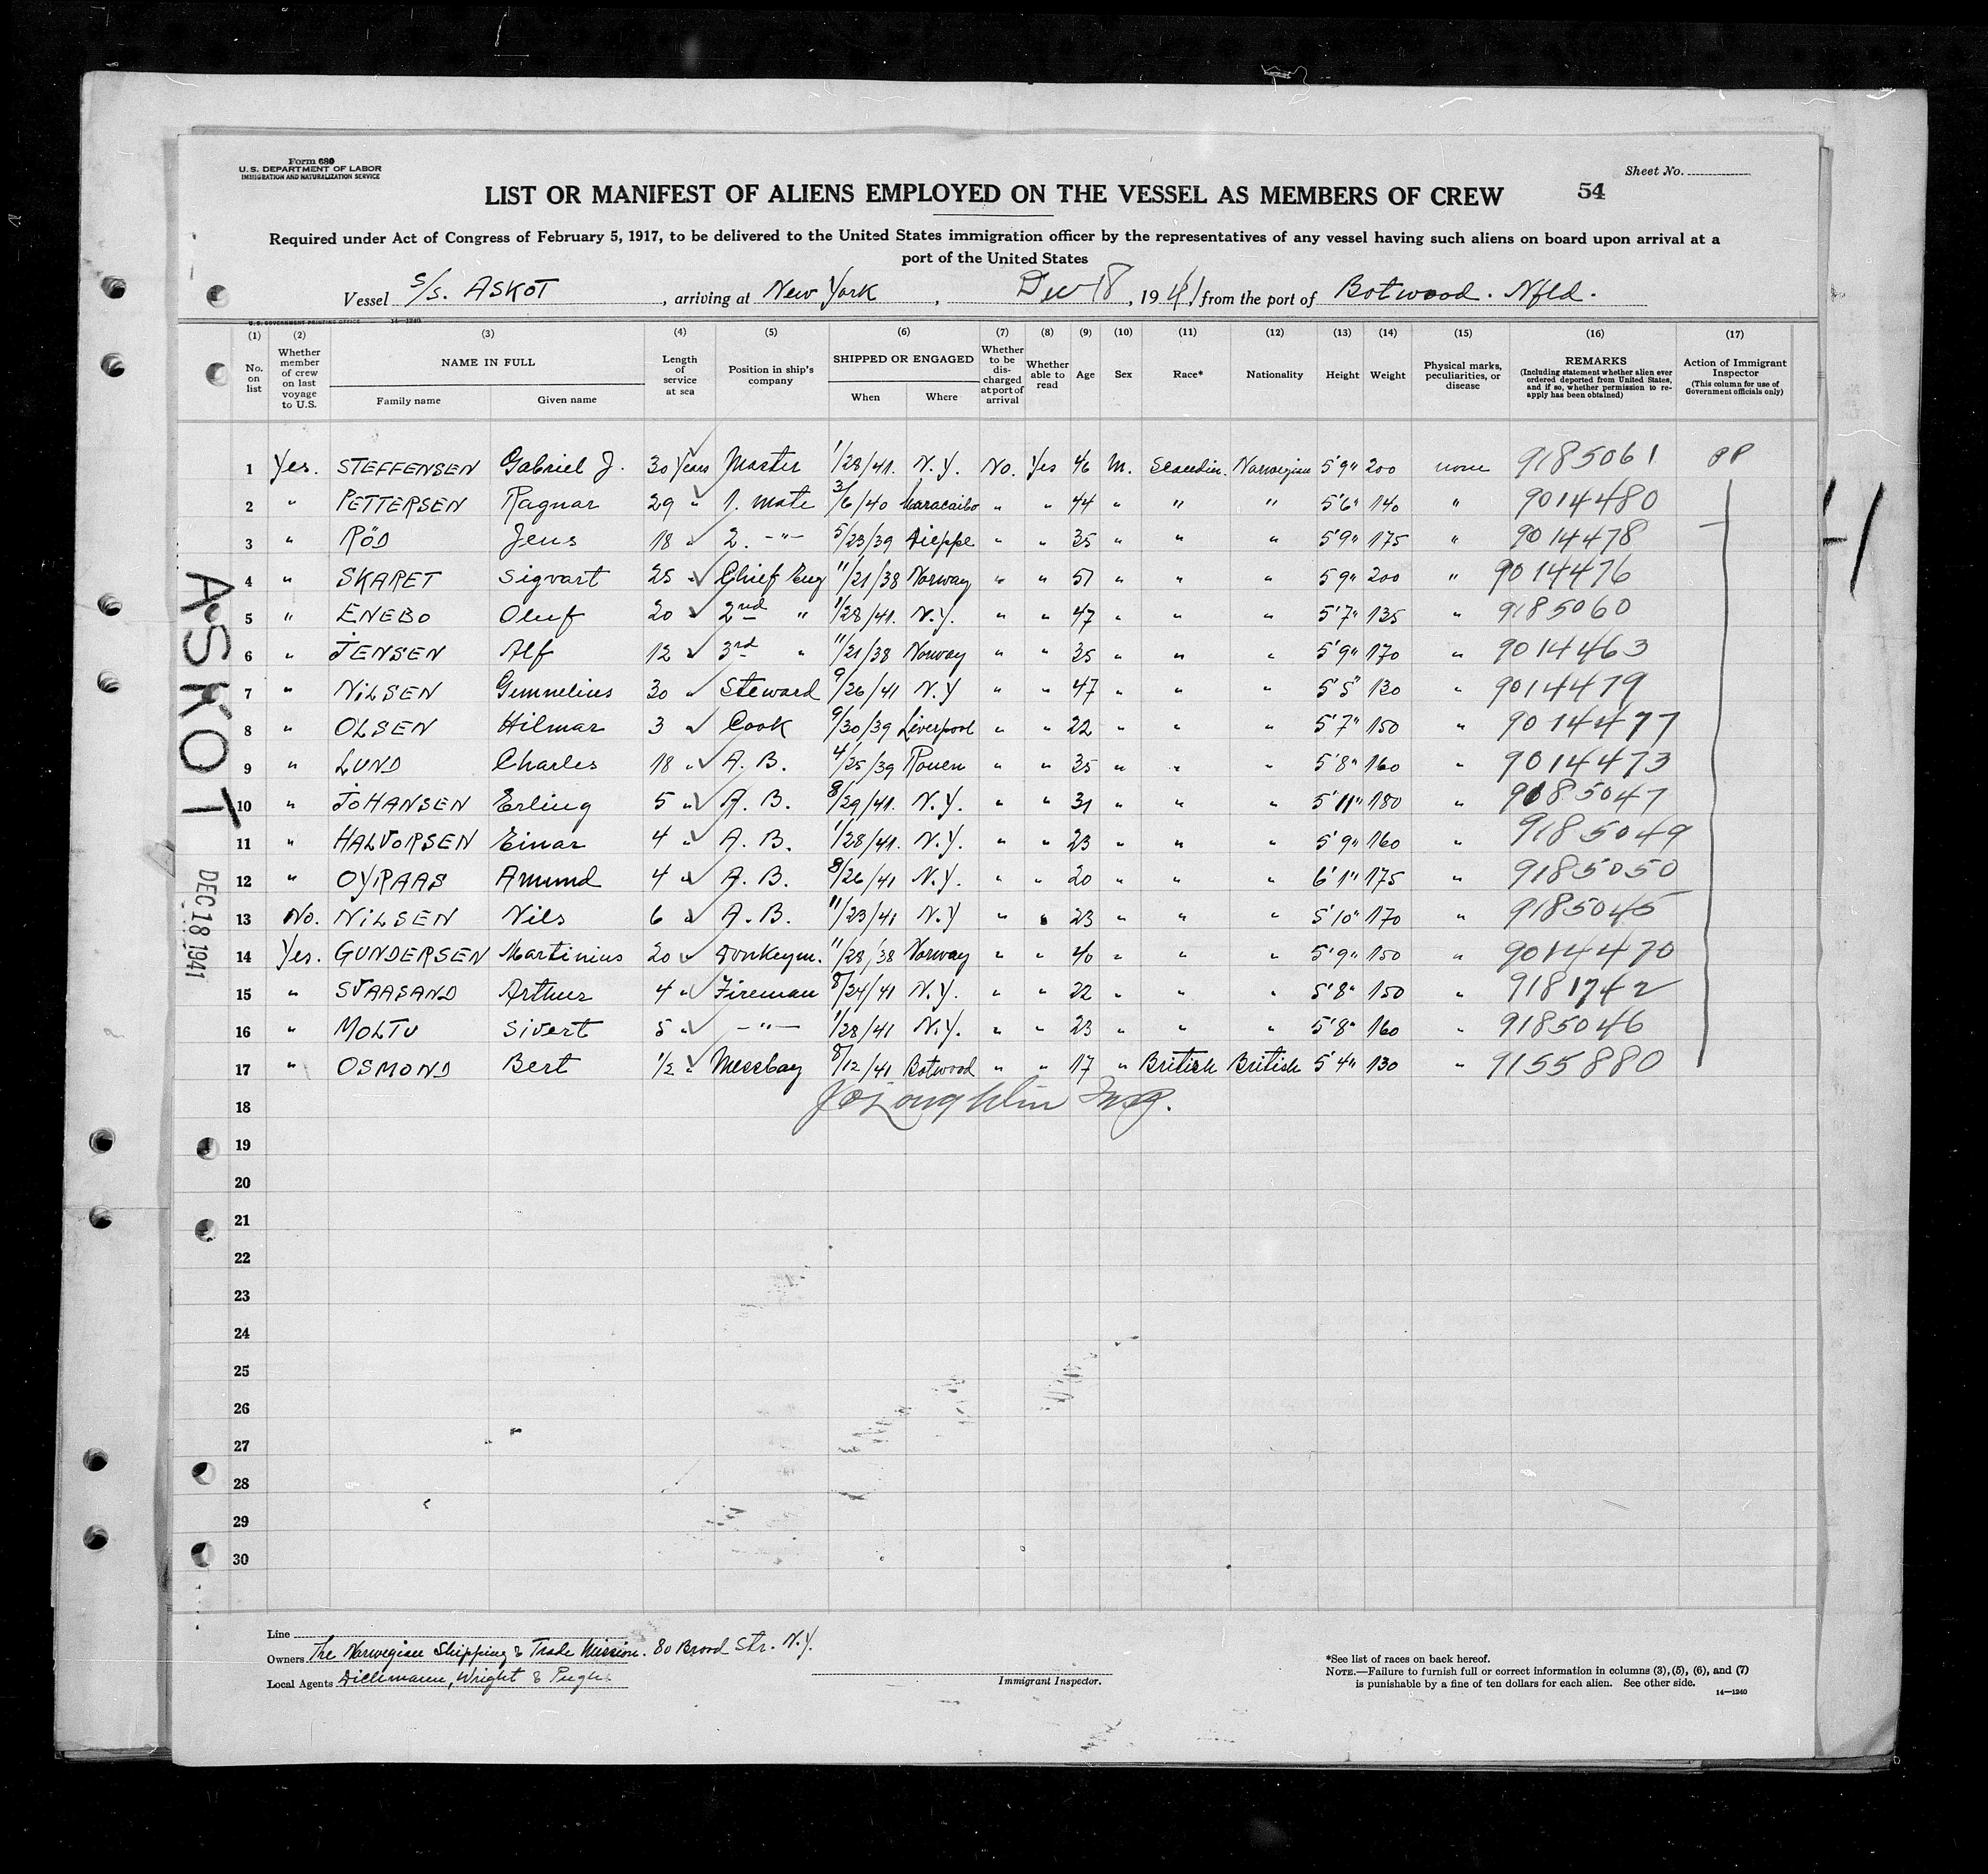 Form 680
U.S. DEPARTMENT OF LABOR
IMMIGRATION AND NATURALIZATION SERVICE
Sheet No.
LIST OR MANIFEST OF ALIENS EMPLOYED ON THE VESSEL AS MEMBERS OF CREW 54
Required under Act of Congress of February 5, 1917, to be delivered to the United States immigration officer by the representatives of any vessel having such aliens on board upon arrival at a
port of the United States
Vessel S/S. ASKOT, arriving at New York, Dec 18, 1941 from the port of Botwood. Nfld.
U. S. GOVERNMENT PRINTING OFFICE 14—1240
(1) (2) (3) (4) (5) (6) (7) (8) (9) (10) (11) (12) (13) (14) (15) (16) (17)
No. on list
Whether member of crew on last voyage to U.S.
NAME IN FULL
Family name Given name
Length of service at sea
Position in ship's company
SHIPPED OR ENGAGED
When Where
Whether to be discharged at port of arrival
Whether able to read
Age
Sex
Race*
Nationality
Height
Weight
Physical marks, peculiarities, or disease
REMARKS
(Including statement whether alien ever ordered deported from United States, and if so, whether permission to reapply has been obtained)
Action of Immigrant Inspector
(This column for use of Government officials only)
1 Yes. STEFFENSEN Gabriel J. 30 years Master 1/28/41. N.Y. No. Yes 46 M. Scandin. Norwegian 5'9" 200 none 9185061 PP
2 " PETTERSEN Ragnar 29 " 1. mate 3/6/40 Maracaibo " " 44 " " " 5'6" 140 " 9014480
3 " RÖD Jens 18 " 2. -"- 5/23/39 Dieppe " " 35 " " " 5'9" 175 " 9014478
4 " SKARET Sigvart 25 " Chief Eng 11/21/38 Norway " " 51 " " " 5 9" 200 " 9014476
5 " ENEBO Oluf 20 " 2nd " 1/28/41. N.Y. " " 47 " " " 5'7" 135 " 9185060
6 " JENSEN Alf 12 " 3rd " 11/21/38 Norway " " 35 " " " 5'9" 170 " 9014463
7 " NILSEN Gemnelius 30 " Steward 9/26/41 N.Y " " 47 " " " 5'5" 130 " 9014479
8 " OLSEN Hilmar 3 " Cook 9/30/39 Liverpool " " 22 " " " 5'7" 150 " 9014477
9 " LUND Charles 18 " A.B. 4/25/39 Rouen " " 35 " " " 5'8" 160 " 9014473
10 " JOHANSEN Erling 5 " A.B. 8/29/41. N.Y. " " 31 " " " 5'11" 180 " 9185047
11 " HALVORSEN Einar 4 " A.B. 1/28/41. N.Y. " " 23 " " " 5'9" 160 " 9185049
12 " OYRAAS Amund 4 " A.B. 8/26/41 N.Y. " " 20 " " " 6'1" 175 " 9185050
13 No. NILSEN Nils 6 " A.B. 11/23/41 N.Y " " 23 " " " 5'10" 170 " 9185045
14 Yes. GUNDERSEN Martinius 20 " Donkeym. 11/28/38 Norway " " 40 " " " 5'9" 150 " 9014470
15 " SVAASAND Arthur 4 " Fireman 8/24/41 N.Y. " " 22 " " " 5'8" 150 " 9181742
16 " MOLTU Sivert 5 " -"- 1/28/41 N.Y. " " 23 " " " 5'8" 160 " 9185046
17 " OSMOND Bert 1/2 " Messboy 8/12/41 Botwood " " 17 " British British 5'4" 130 " 9155880
18 J O'Loughlin Insp.
19
20
21
22
23
24
25
26
27
28
29
30
ASKOT
DEC 18 1941
Line
Owners The Norwegian Shipping & Trade Mission. 80 Broad Str. N.Y.
Local Agents Wright & Pugh
Immigrant Inspector.
*See list of races on back hereof.
NOTE.—Failure to furnish full or correct information in columns (3), (5), (6), and (7)
is punishable by a fine of ten dollars for each alien. See other side.
14—1240